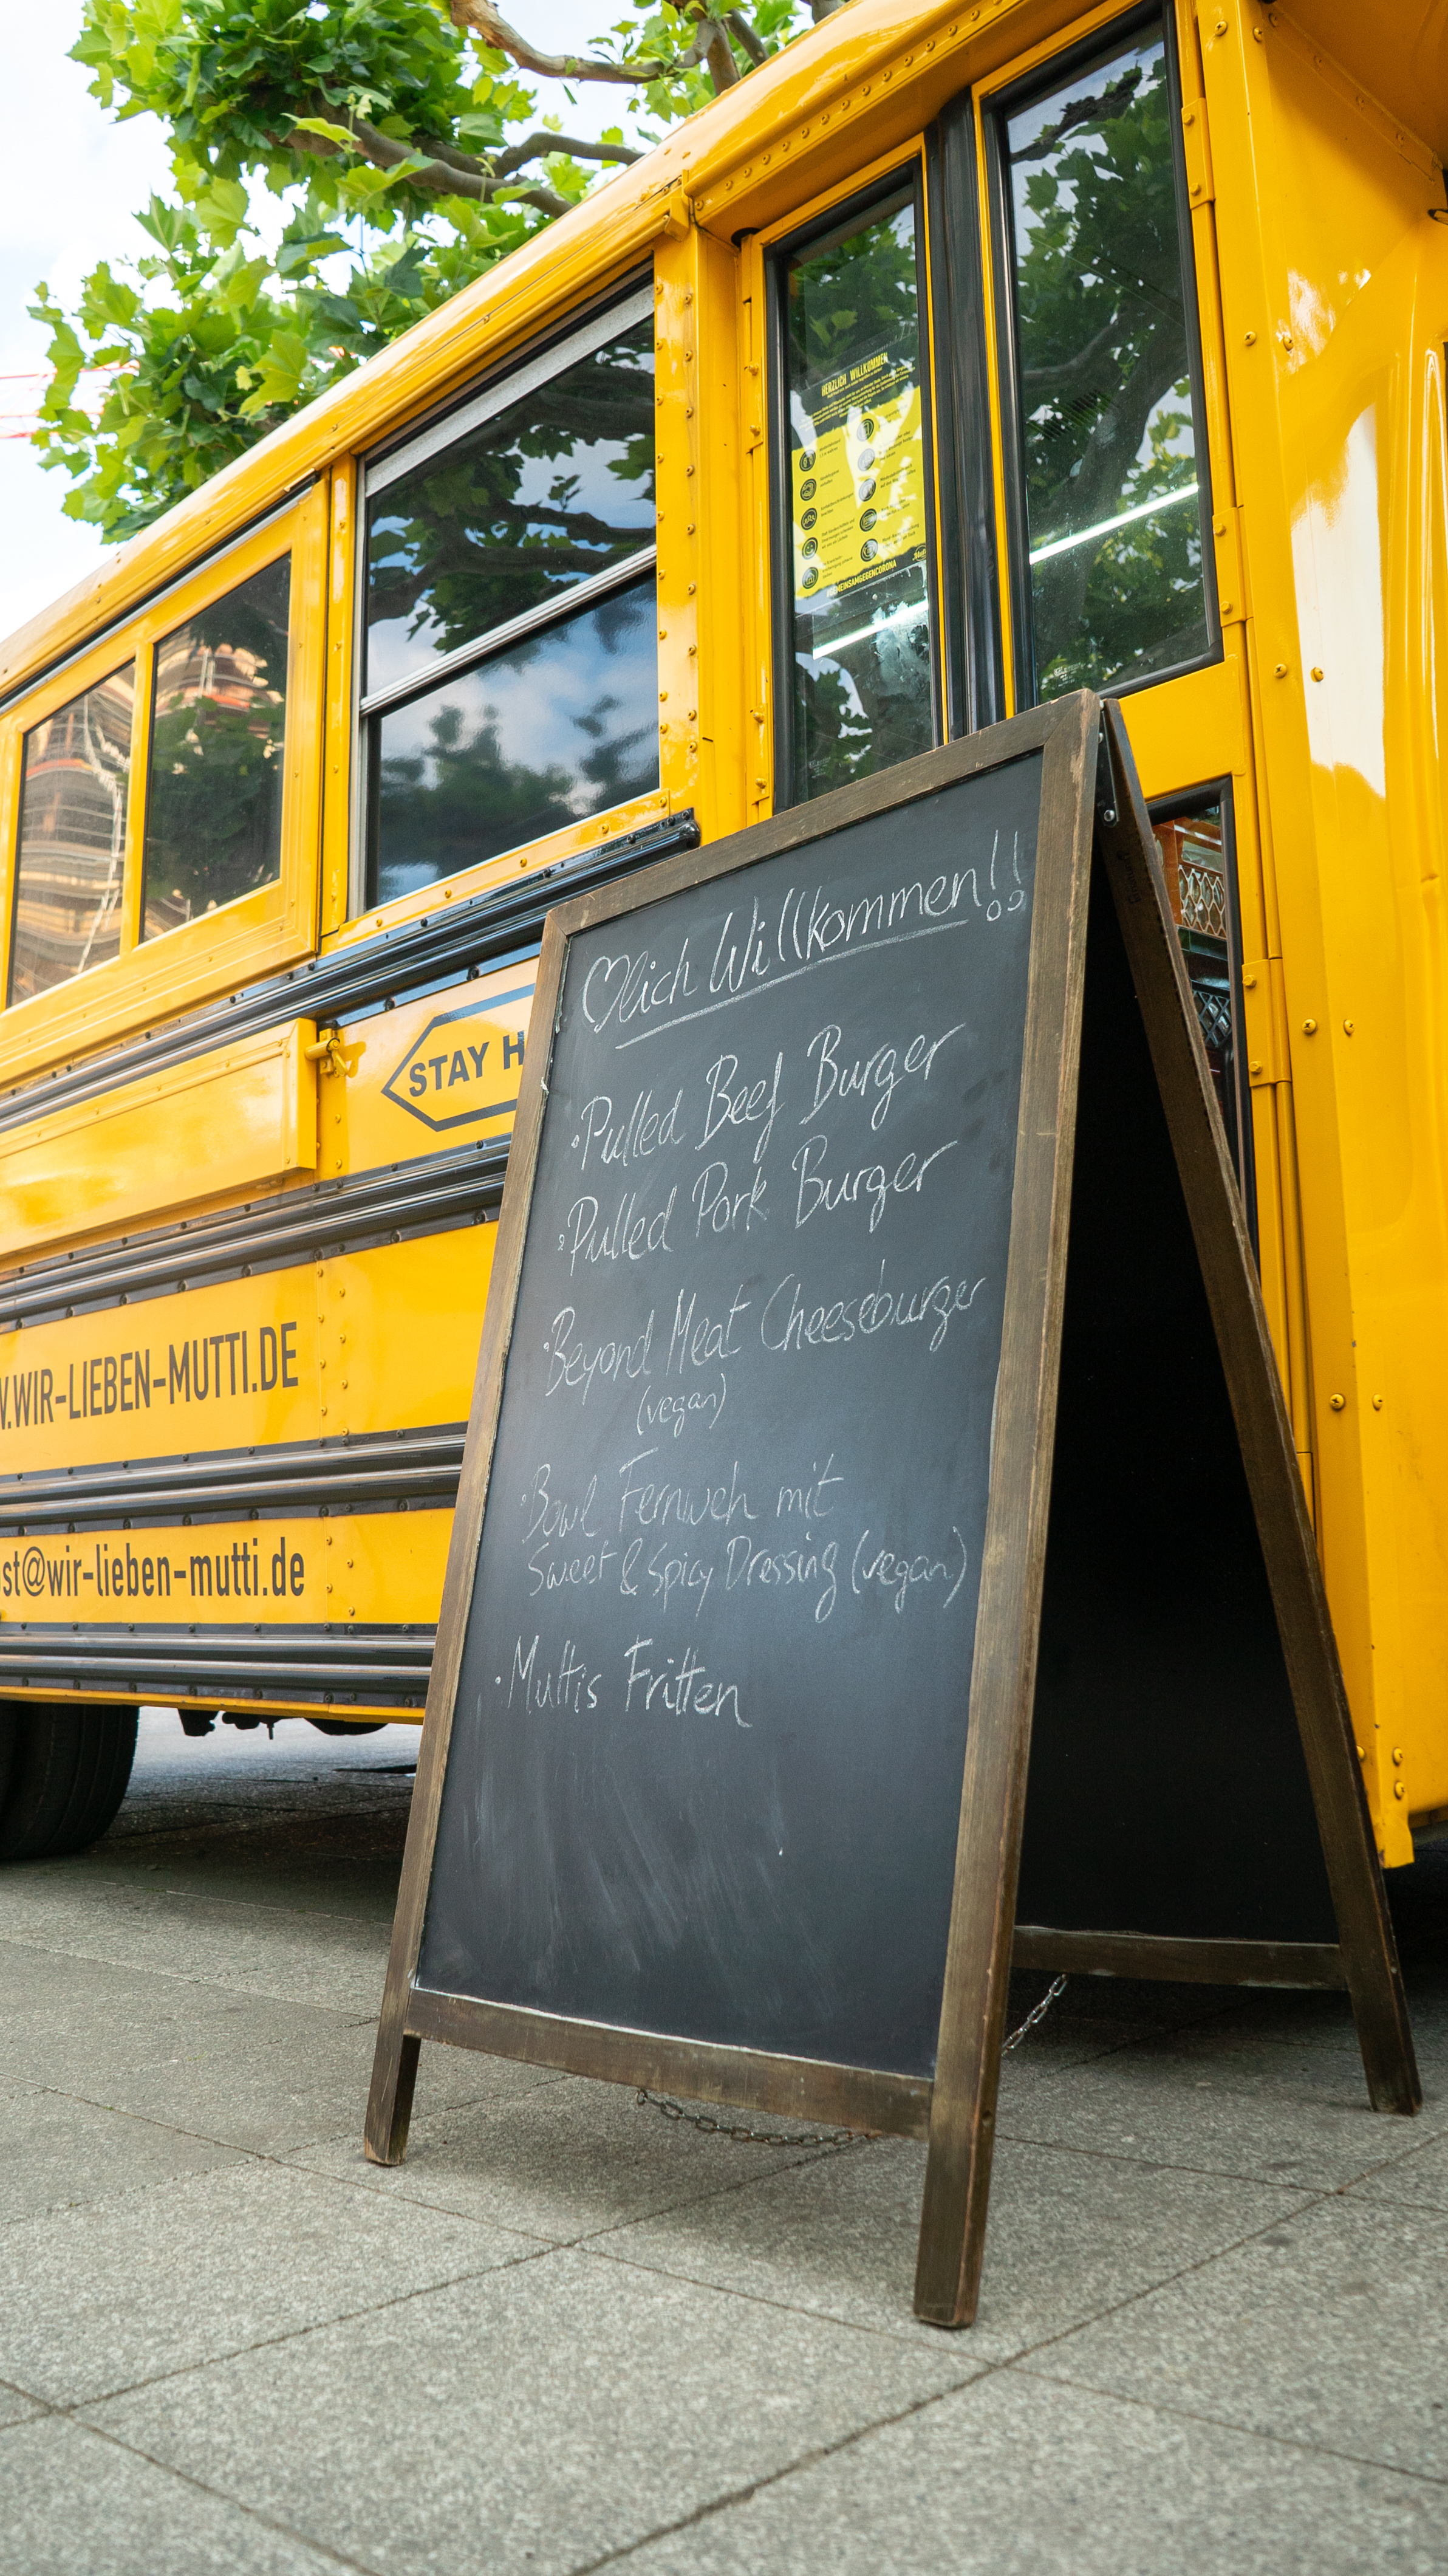 HERZLICH WILLKOMMEN
#GEMEINSAMGEGENCORONA
♡lich Willkommen!!
• Pulled Beef Burger
• Pulled Pork Burger
• Beyond Meat Cheeseburger
(vegan)
• Bowl Fernweh mit
Sweet & Spicy Dressing (vegan)
• Muttis Fritten
STAY H
W.WIR-LIEBEN-MUTTI.DE
st@wir-lieben-mutti.de